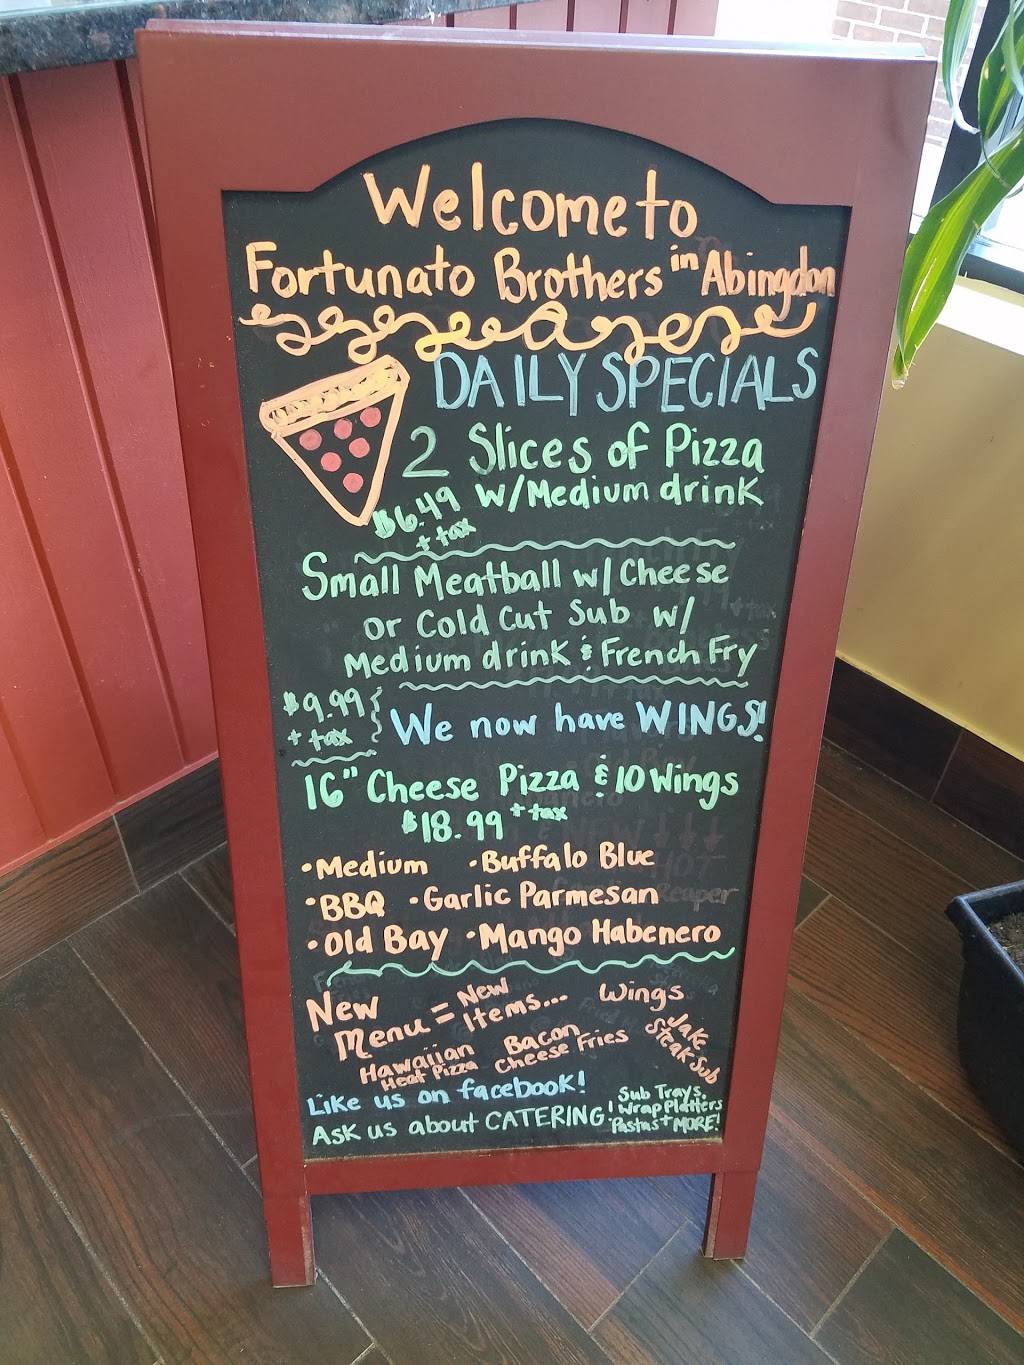 Welcome to
Fortunato Brothers in Abingdon
DAILY SPECIALS
2 Slices of Pizza
w/Medium drink
$6.49
+ tax
Small Meatball w/ Cheese
or Cold Cut Sub w/
Medium drink & French Fry
$9.99
+ tax
We now have WINGS!
16" Cheese Pizza & 10 Wings
$18.99 + tax
•Medium •Buffalo Blue
•BBQ •Garlic Parmesan
•Old Bay •Mango Habenero
New
Menu = New
Items...
Wings
Jake
Steak Sub
Hawaiian
Heat Pizza
Bacon
Cheese Fries
Like us on facebook!
Ask us about CATERING
Sub Trays,
Wrap Platters
Pastas + MORE!